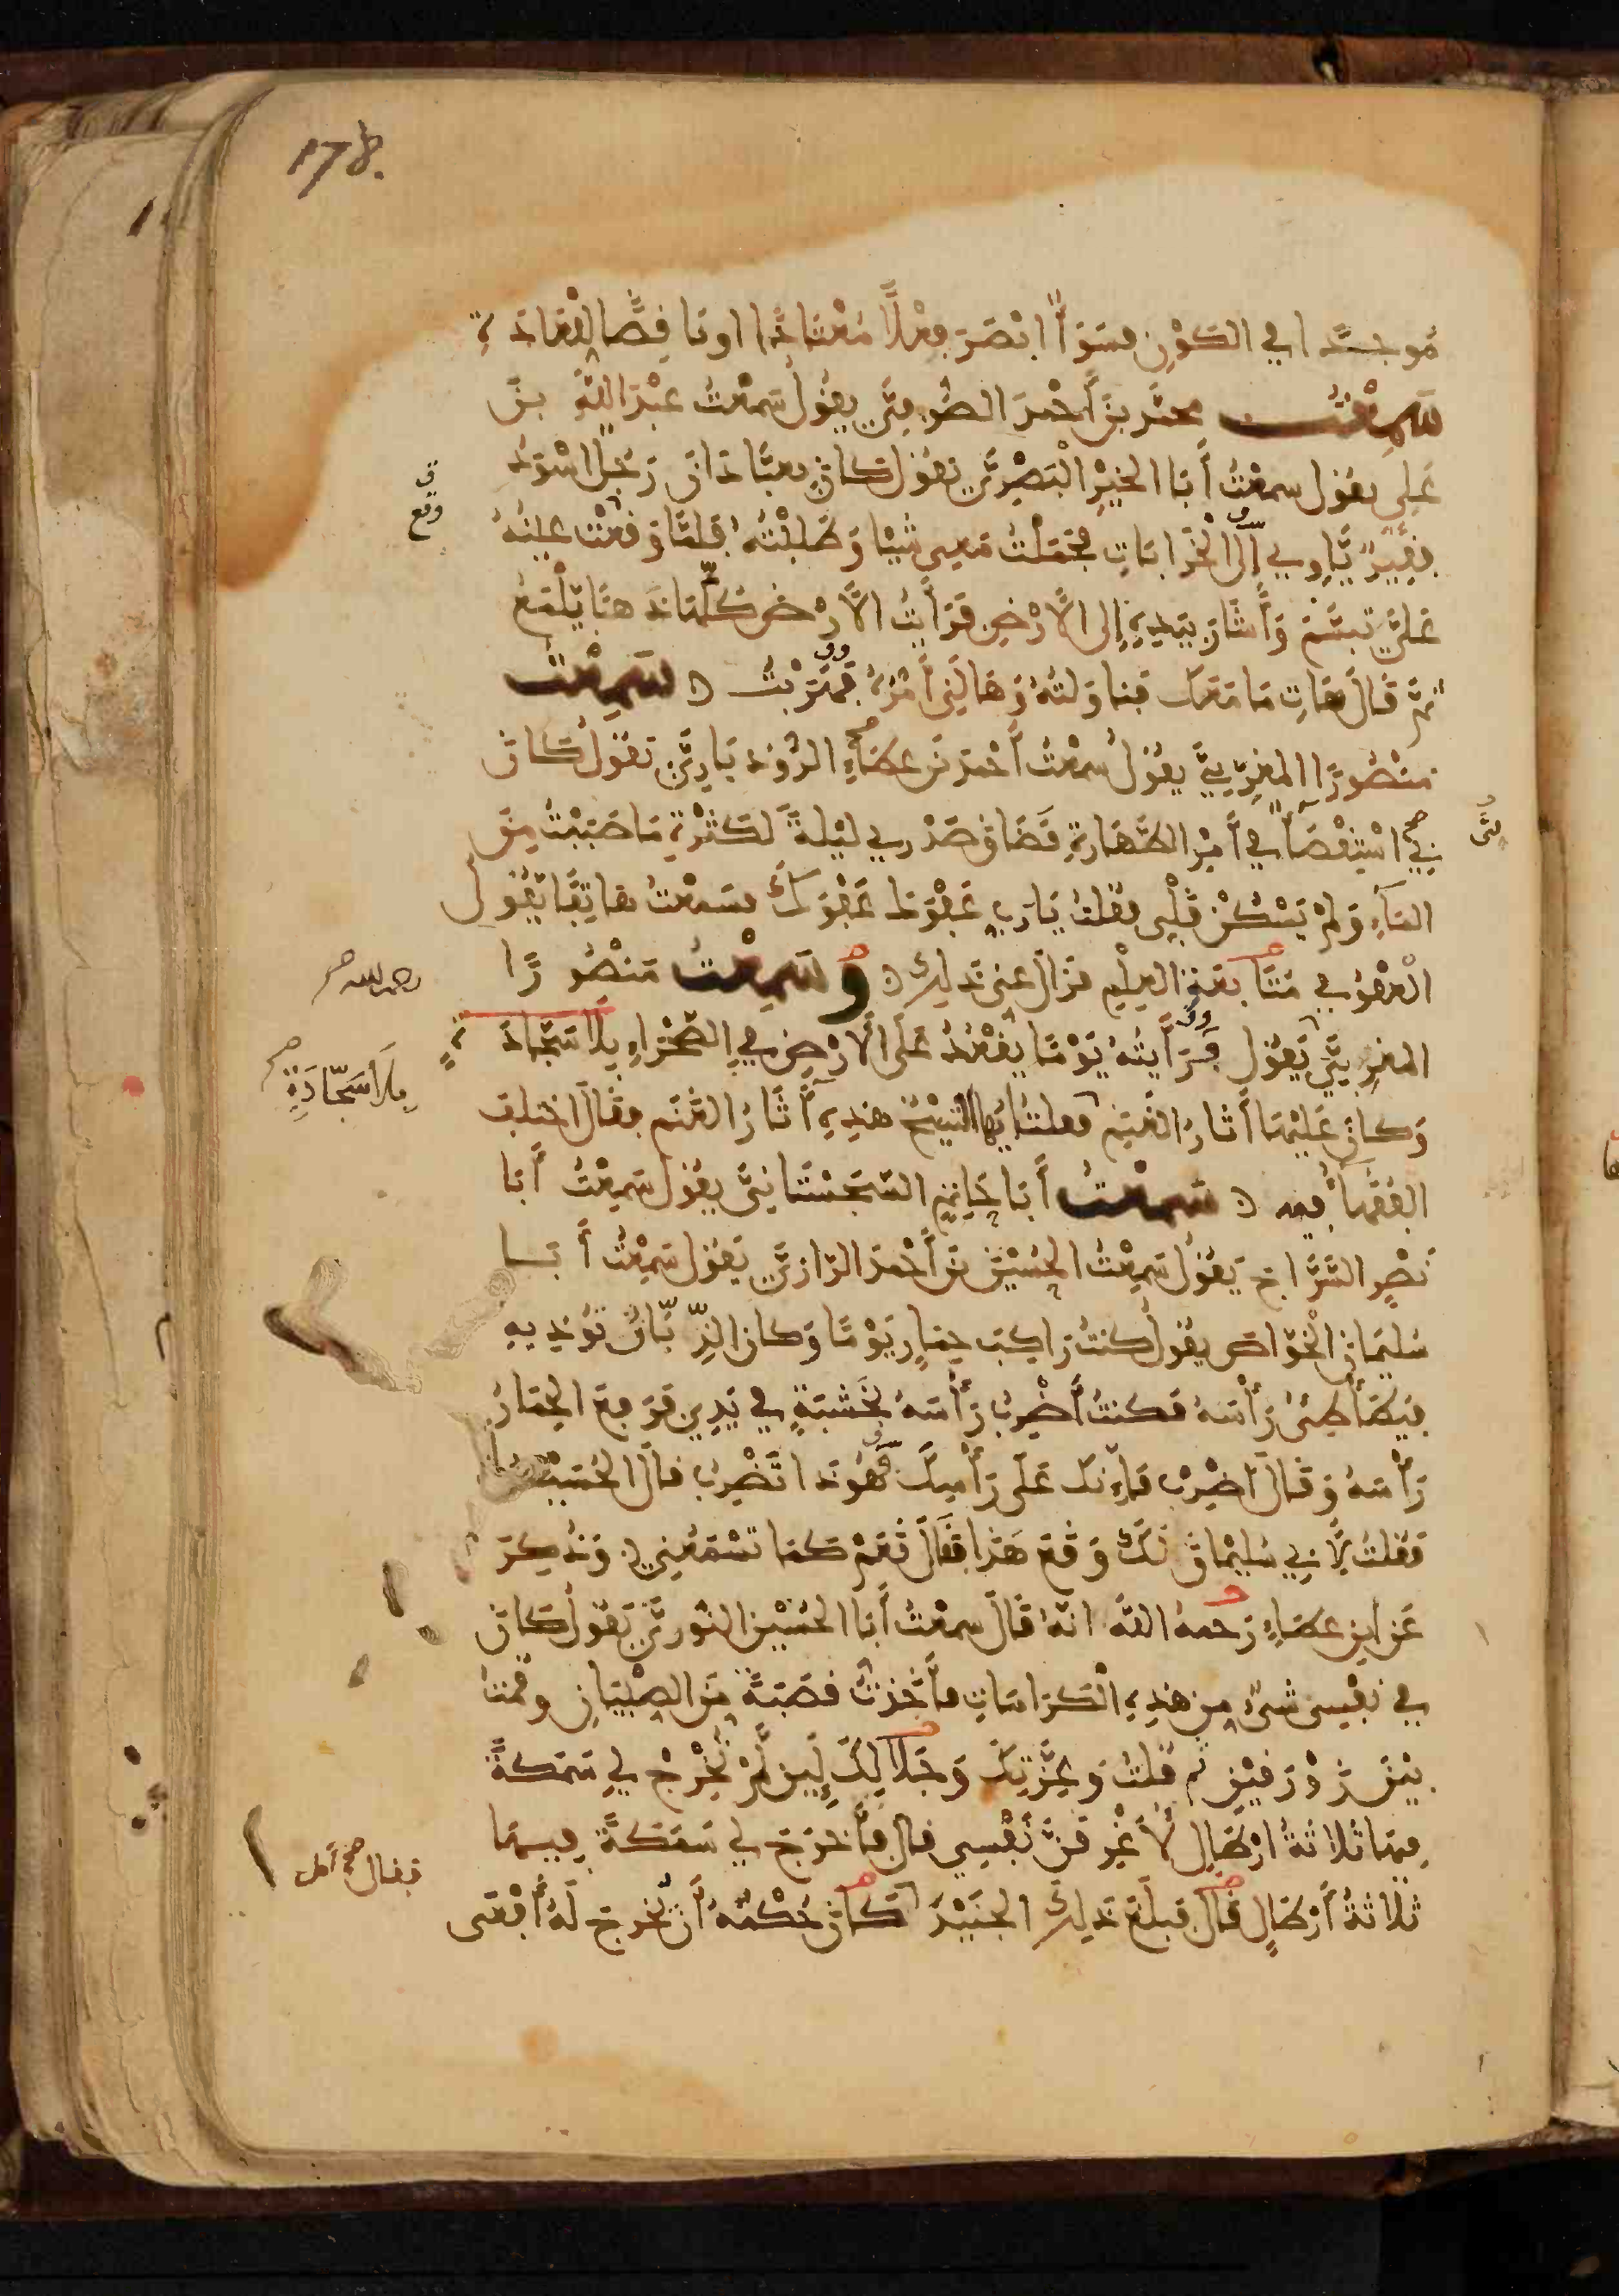 178.
مُوجِدًا في الكَوْنِ فسَوَآءً ابْصَرَ فِعْلًا مُعْتَادًا اوْ نَافِضًا لِلْعَادَةِ
سَمِعْتُ محمّد بنَ أَحْمَدَ الصُّوفِيَّ يقُولُ سَمِعْتُ عَبْدَ اللَّهِ بنَ
عَلِي يقُول سمعْتُ أَبَا الخَيْرِ الْبَصْرِيَّ يَقُولُ كَانَ بعَبَّادَانَ رَجُلٌ اسْوَدُ
فقِيرٌ يَّاوِي إلى الخَرَابَاتِ فحَمَلْتُ مَعِي شَيْئًا وَطَلَبْتُهُ فَلَمَّا وَقَعَتْ عَيْنُهُ
وقع
عَلَيَّ تبَسَّمَ وَأَشَارَ بِيَدِهِ إِلى الأَرْضِ فَرَأَيْتُ الأَرْضَ كُلَّهَا ذَهَبًا يَلْمَعُ
ثُمَّ قَالَ هَاتِ مَا مَعَكَ فَنَاوَلْتُهُ وَهَالَنِي أَمْرُهُ فَهَرَبْتُ سَمِعْتُ
مَنْصُورًا المغرِبِيَّ يقُولُ سَمِعْتُ أَحْمَدَ بْنَ عَطَاءٍ الرُّوذبَارِيَّ يَقُولُ كَانَ
لِي اسْتِقْصَآءٌ فِي أَمْرِ الطَّهَارَةِ فَضَاقَ صَدْرِي لَيْلَةً لِكَثْرَةِ مَا صَبَبْتُ مِنَ
المَآءِ وَلَمْ يَسْكُنْ قَلْبِي فقُلْتُ يَا رَبِّ عَفْوَكَ عَفْوَكَ فسَمِعْتُ هَاتِفًا يَّقُولُ
الْعَفْوُ فِي مُتَابَعَةِ العِلْمِ فزَالَ عَنِّي ذَلِكَ وَسَمِعْتُ مَنْصُورًا
رحمه الله صح
المغرِبِيَّ يَقُولُ فرَأَيْتُهُ يَوْمًا يقْعُدُ عَلَى الأَرْضِ فِي الصَّحْرَاءِ بِلَا سَجَّادَةٍ
بِلَا سَجَّادَةٍ صح
وَكَانَ عَلَيْهَا أَثَارُ الغَنَمِ فقلتُ أَيُّهَا الشَّيْخُ هذِهِ أَثَارُ الغَنَمِ فقَالَ اخْتَلَفَ
الفُقَهَاءُ فيه سَمِعْتُ أَبَا حَاتِمٍ السِّجِسْتَانِيَّ يقُولُ سَمِعْتُ أَبَا
نَصْرٍ السَّرَّاجَ يَقُولُ سَمِعْتُ الحُسَيْنَ بنَ أَحْمَدَ الرَّازِيَّ يَقُولُ سَمِعْتُ أَبَا
سُلَيْمَانَ الْخَوَّاصَ يقُولُ كُنْتُ رَاكِبَ حِمَارٍ يَوْمًا وَكَانَ الذُّبَّانُ تُوذِيهِ
فيُطَأْطِئُ رَأْسَهُ فكُنْتُ أَضْرِبُ رَأْسَهُ بِخَشَبَةٍ فِي يَدِي فرَفعَ الحِمَارُ
رَأْسَهُ وَقَالَ اضْرِبْ فَإِنَّكَ عَلَى رَأْسِكَ هُوَ ذَا تَضْرِبُ قالَ الحُسَيْنُ
فَقُلْتُ لأَبِي سُلَيْمَانَ لَكَ وَقَعَ هَذَا فقَالَ نَعَمْ كَمَا تَسْمَعُنِي وَذُكِرَ
عَنِ ابْنِ عَطَاءٍ رَحمهُ اللَّهُ انَّهُ قَالَ سمعْتُ أَبَا الحُسَيْنِ النُّورِيَّ يَقُولُ كَانَ
فِي نَفْسِي شَيْءٌ مِنْ هذِهِ الْكَرَامَاتِ فأَخَذْتُ قصَبَةً مِّنَ الصِّبْيَانِ وقُمْتُ
بَيْنَ زَوْرَقَيْنِ ثم قلتُ وَعِزَّتِكَ وَجَلَالِكَ لَئِن لَّمْ تُخْرِجْ لِي سَمَكَةً
فِيهَا ثَلَاثَةُ ارْطَالٍ لأُغْرِقَنَّ نَفْسِي قال فأُخْرِجَ لِي سَمَكَةٌ فِيهَا
ثَلَاثَةُ أَرْطَالٍ قَالَ فبَلَغَ ذَلِكَ الجُنَيْدَ كَانَ حُكْمُهُ أَنْ تُخْرَجَ لَهُ أَفْعَى
فقال صح أصل